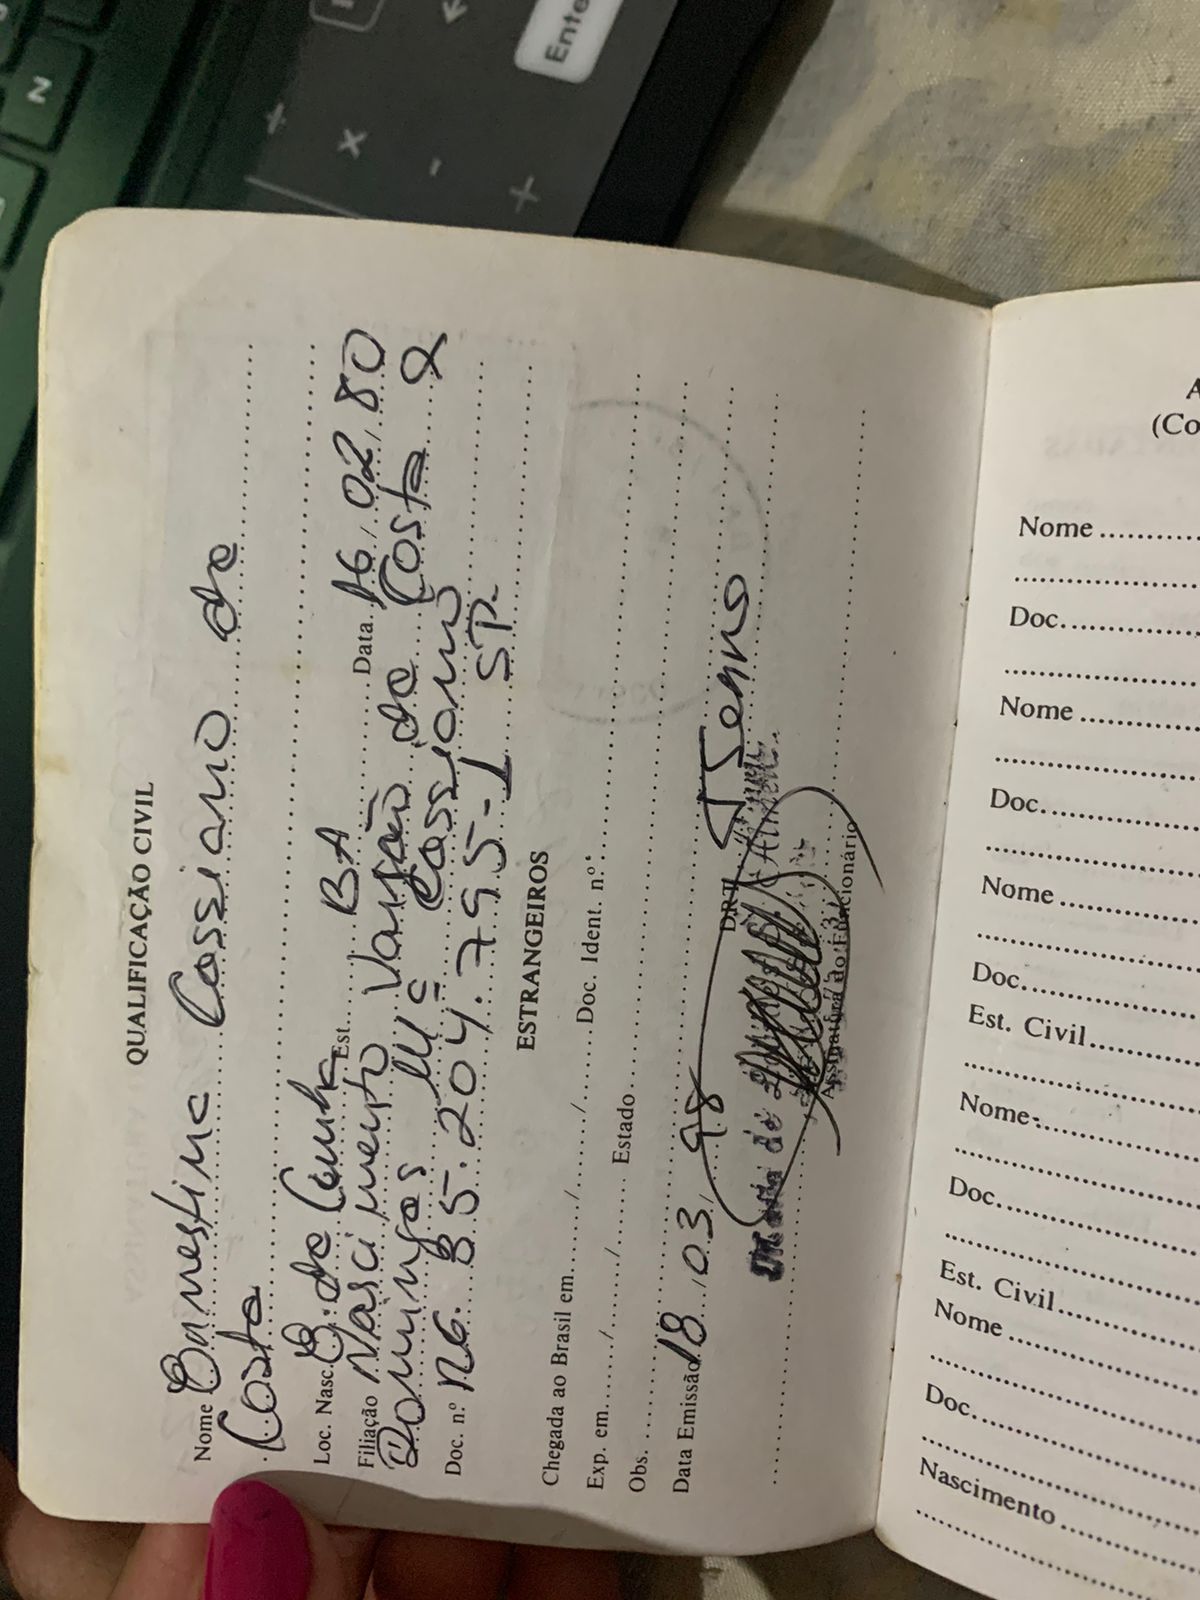 QUALIFICAÇÃO CIVIL
Nome Ernestina Cassiano da
Costa
Loc. Nasc. E. da Cunha Est. BA Data 16.02.80
Filiação Nascimento da Costa e
Domingas Mª Cassiano
Doc. n.º RG. 35.204.795-1 SP.
ESTRANGEIROS
Chegada ao Brasil em / / Doc. Ident. n.º
Exp. em / / Estado
Obs.
Data Emissão 18.03.98 DRT
Assinatura do Funcionário
A
(Co
Nome
Doc.
Nome
Doc.
Nome
Doc.
Est. Civil
Nome
Doc.
Est. Civil
Nome
Doc.
Nascimento
N
Enter
+
x
-
+